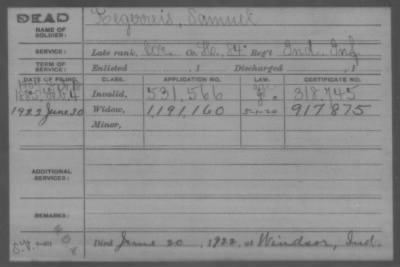 DEAD
NAME OF SOLDIER: Samuel
SERVICE: Late rank, Co. 84" Reg't Ind. Inf.
TERM OF SERVICE: Enlisted , 1 Discharged , 1
DATE OF FILING. CLASS. APPLICATION NO. LAW. CERTIFICATE NO.
Invalid, 531,566 318745
1922 June 30 Widow, 1,191,160 917875
Minor,
ADDITIONAL SERVICES:
REMARKS:
Died June 20, 1922, at Windsor, Ind.